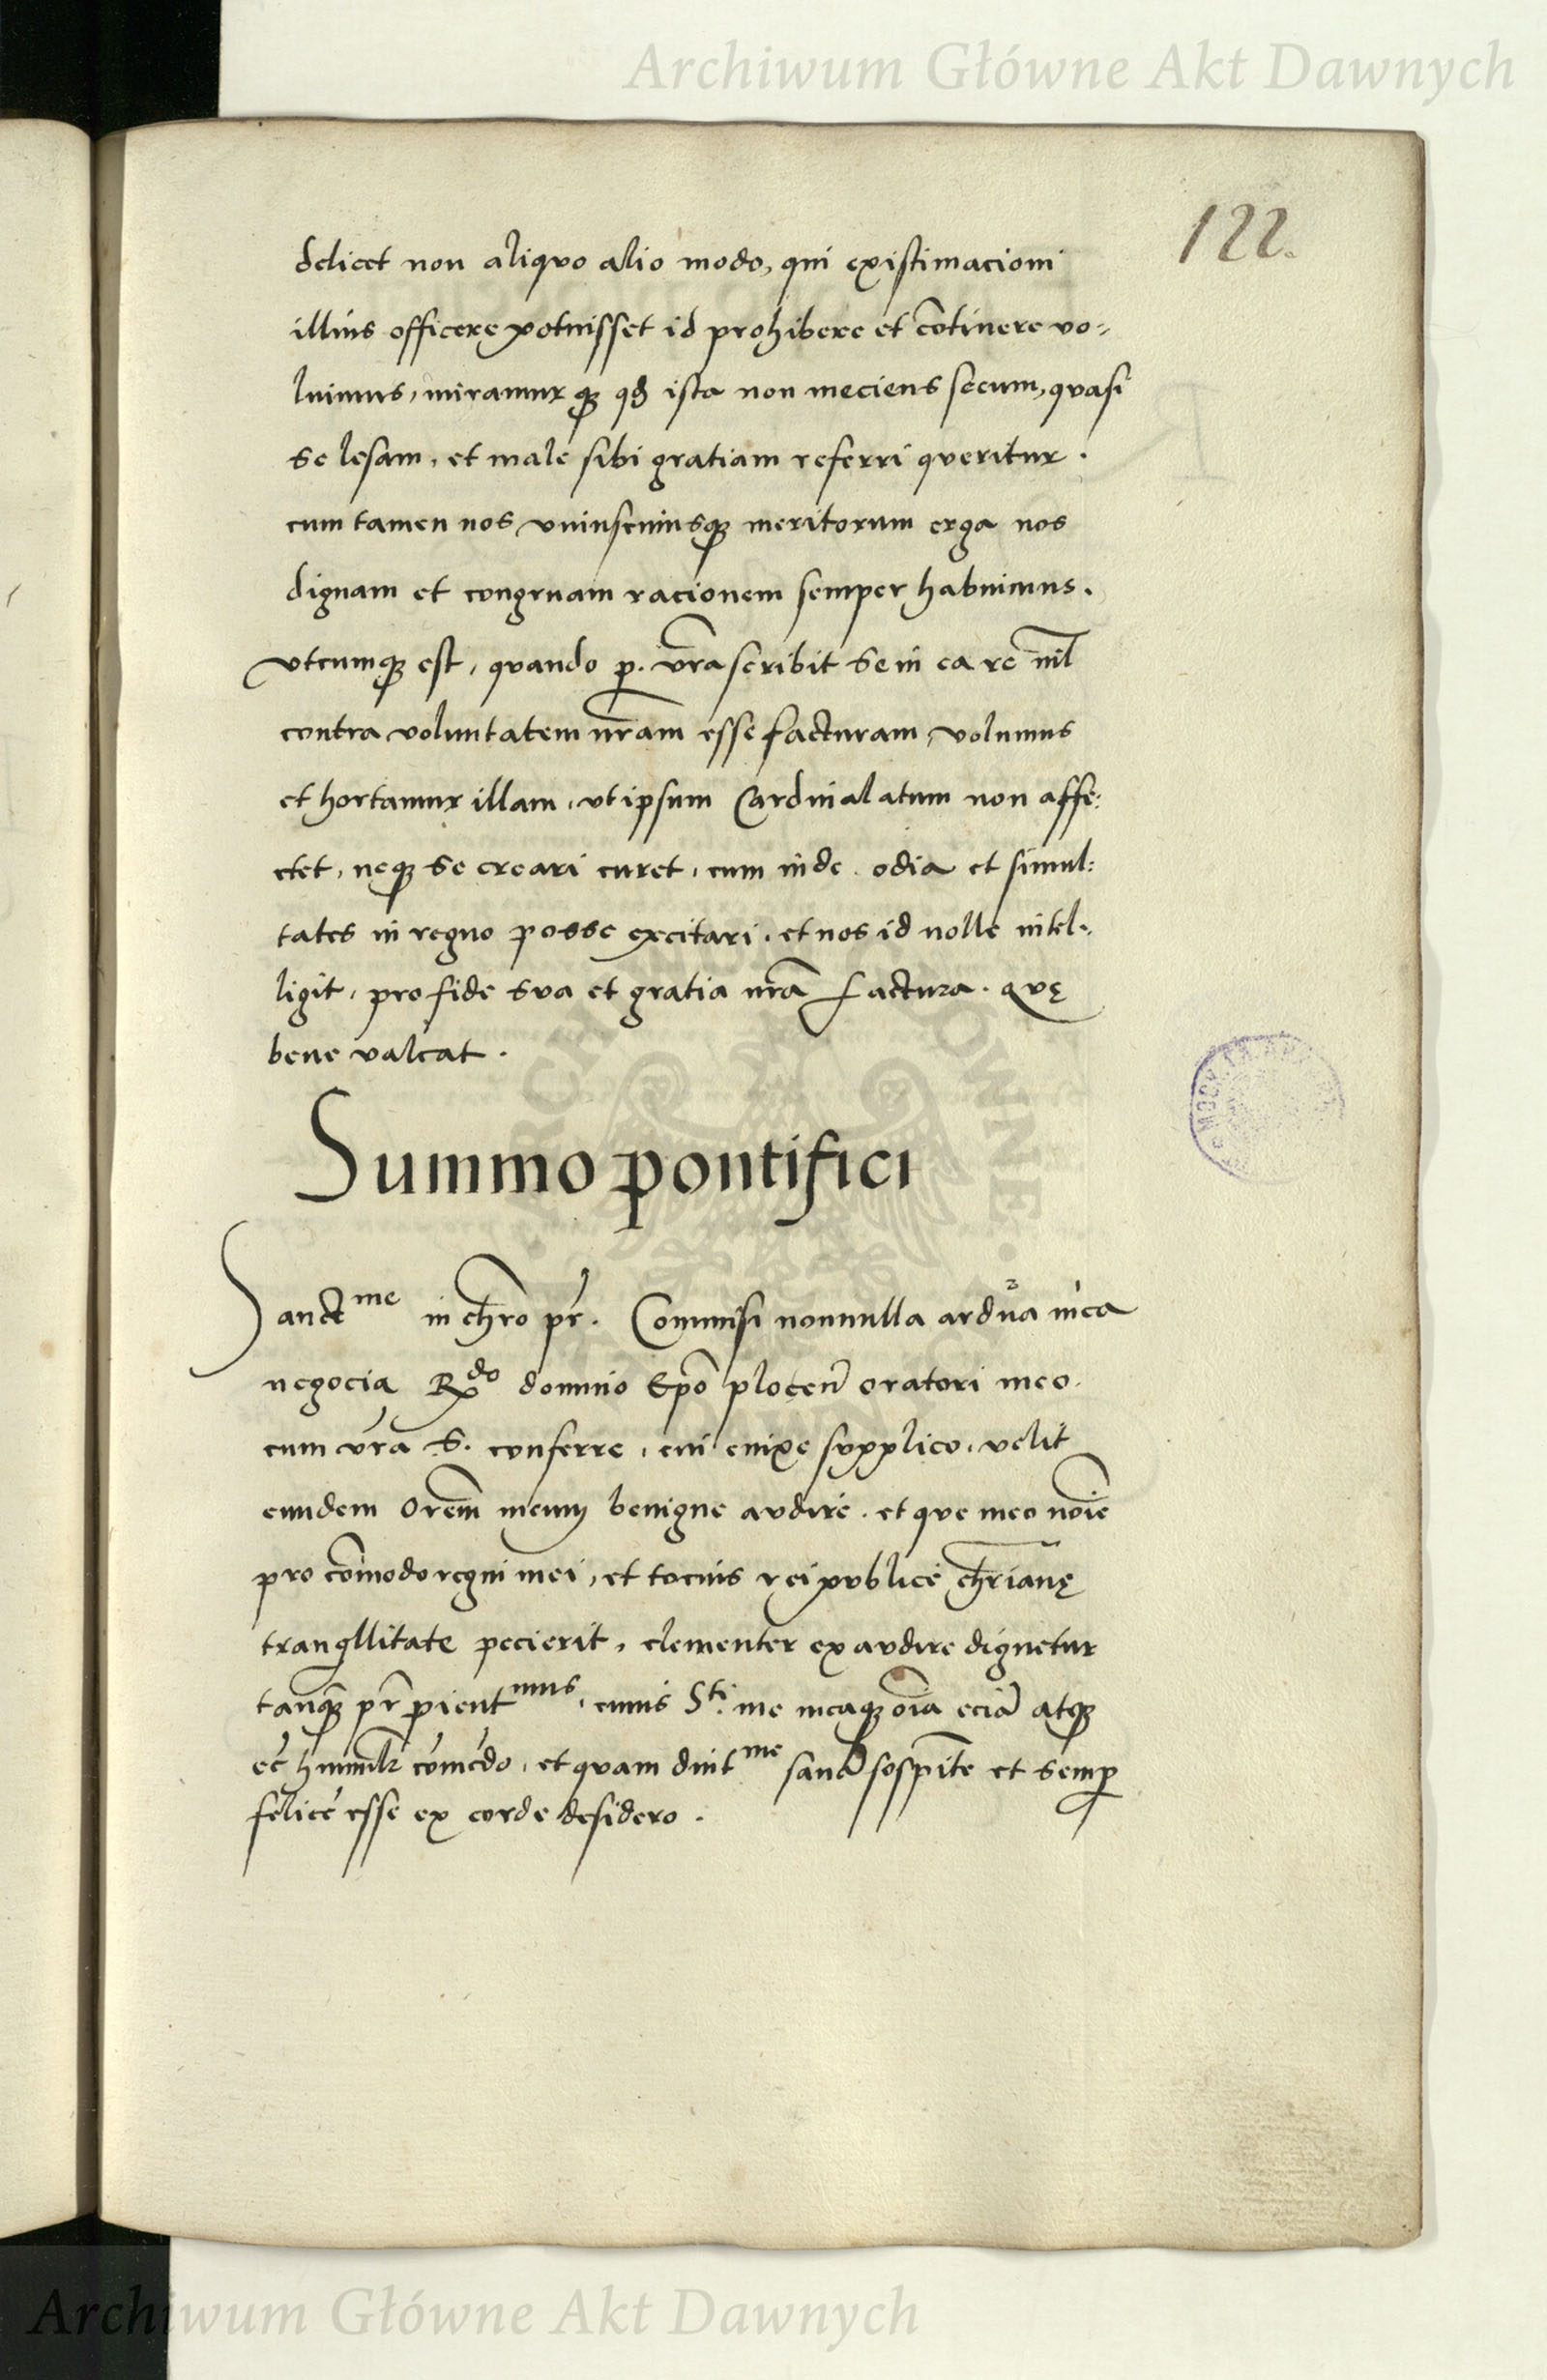 Archiwum Główne Akt Dawnych
122.
delicet non aliquo alio modo, qui existimacioni
illius officere potuisset id prohibere et cõtinere vo-
luimus, miramur qꝫ qđ ista non meciens secum, quasi
se lesam, et male sibi gratiam referri queritur.
cum tamen nos vniuscuiusqꝫ meritorum erga nos
dignam et congruam racionem semper habuimus.
vtcumqꝫ est, quando p. vr̃a scribit se in ea re nil̃
contra voluntatem nr̃am esse facturam, volumus
et hortamur illam, vt ipsum Cardinalatum non affe:
ctet, neqꝫ se creari curet, cum inde odia et simul:
tates in regno posse excitari, et nos id nolle intel-
ligit, pro fide sua et gratia nr̃a factura. quę
bene valeat.
Summo pontifici
Sanctme in chr̃o pr̃. Commisi nonnulla ardua mea
negocia Rdo domino Ep̃o plocen̄ oratori meo
cum vr̃a S. conferre, cui enixe supplico, velit
eundem Orem̃ meum benigne audire. et que meo nõie
pro cõmodo regni mei, et tocius rei publice chr̃ianę
tranqllitate pecierit, clementer exaudire dignetur
tanqꝫ pr̃ pientmus, cuius Sti me meaqꝫ oĩa eciã atqꝫ
eč humilr̃ cõmẽdo, et quam diutme sanã sospitẽ et semꝑ
felicẽ esse ex corde desidero.
Archiwum Główne Akt Dawnych